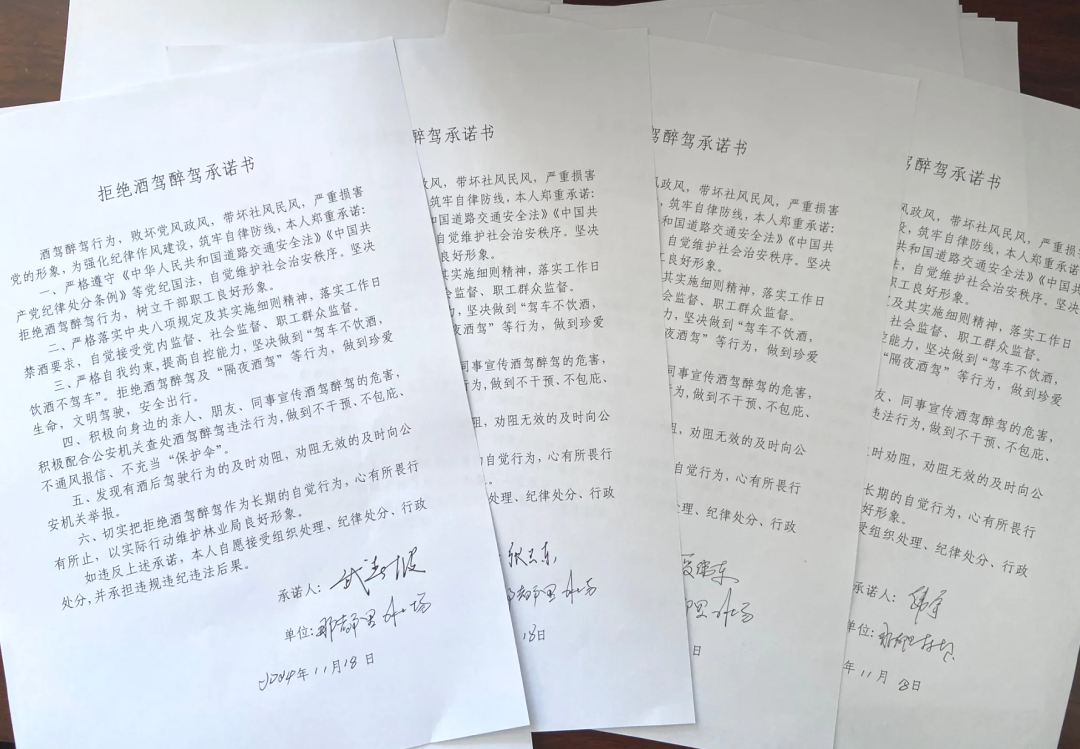 拒绝酒驾醉驾承诺书
酒驾醉驾行为，败坏党风政风，带坏社风民风，严重损害
党的形象，为强化纪律作风建设，筑牢自律防线，本人郑重承诺：
一、严格遵守《中华人民共和国道路交通安全法》《中国共
产党纪律处分条例》等党纪国法，自觉维护社会治安秩序。坚决
拒绝酒驾醉驾行为，树立干部职工良好形象。
二、严格落实中央八项规定及其实施细则精神，落实工作日
禁酒要求，自觉接受党内监督、社会监督、职工群众监督。
三、严格自我约束，提高自控能力，坚决做到“驾车不饮酒，
饮酒不驾车”。拒绝酒驾醉驾及“隔夜酒驾”等行为，做到珍爱
生命，文明驾驶，安全出行。
四、积极向身边的亲人、朋友、同事宣传酒驾醉驾的危害，
积极配合公安机关查处酒驾醉驾违法行为，做到不干预、不包庇、
不通风报信、不充当“保护伞”。
五、发现有酒后驾驶行为的及时劝阻，劝阻无效的及时向公
安机关举报。
六、切实把拒绝酒驾醉驾作为长期的自觉行为，心有所畏行
有所止，以实际行动维护林业局良好形象。
如违反上述承诺，本人自愿接受组织处理、纪律处分、行政
处分，并承担违规违纪违法后果。
承诺人：
单位：那都里林场
2024年11月18日
醉驾承诺书
风政风，带坏社风民风，严重损害
，筑牢自律防线，本人郑重承诺：
和国道路交通安全法》《中国共
自觉维护社会治安秩序。坚决
良好形象。
其实施细则精神，落实工作日
会监督、职工群众监督。
能力，坚决做到“驾车不饮酒，
夜酒驾”等行为，做到珍爱
同事宣传酒驾醉驾的危害，
行为，做到不干预、不包庇、
阻，劝阻无效的及时向公
自觉行为，心有所畏行
处理、纪律处分、行政
18日
驾醉驾承诺书
风政风，带坏社风民风，严重损害
，筑牢自律防线，本人郑重承诺：
国道路交通安全法》《中国共
，自觉维护社会治安秩序。坚决
工良好形象。
其实施细则精神，落实工作日
会监督、职工群众监督。
力，坚决做到“驾车不饮酒，
夜酒驾”等行为，做到珍爱
同事宣传酒驾醉驾的危害，
行为，做到不干预、不包庇、
阻，劝阻无效的及时向公
自觉行为，心有所畏行
理、纪律处分、行政
日
驾醉驾承诺书
风政风，带坏社风民风，严重损害
设，筑牢自律防线，本人郑重承诺
共和国道路交通安全法》《中国共
法，自觉维护社会治安秩序。坚决
职工良好形象。
及其实施细则精神，落实工作日
社会监督、职工群众监督。
控能力，坚决做到“驾车不饮酒，
隔夜酒驾”等行为，做到珍爱
友、同事宣传酒驾醉驾的危害，
违法行为，做到不干预、不包庇、
及时劝阻，劝阻无效的及时向公
长期的自觉行为，心有所畏行
好形象。
受组织处理、纪律处分、行政
承诺人：
单位：
年11月18日